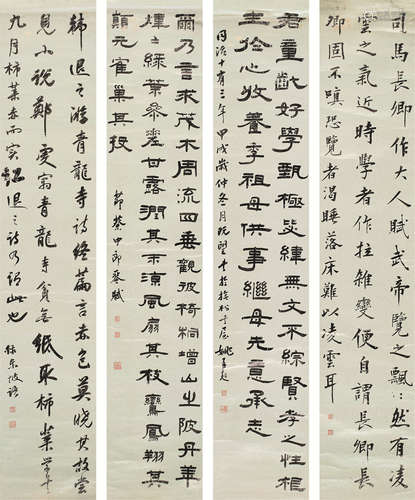 司馬長卿作大人賦武帝覽之飄〻然有凌
雲之氣近時學者作拉雜變便自謂長卿長
卿固不嗔恐覽者渴睡落床難以凌雲耳
君童齔好學甄極毖緯無文不綜賢孝之性根
生於心收養季祖母供事繼母先意承志
同治十有三年甲戌歲仲冬月既望書於松書屋姚孟起
爾乃言求茂木周流四垂觀彼椅桐增山之陂丹華
煒〻綠葉參差甘露潤其末涼風扇其枝鸞鳳翔其
巔元崔巢其枝
節蔡中郎琴賦
韓退之游青龍寺詩終篇言赤色莫曉其故嘗
見小說鄭虔寓青龍寺貧無紙取柿葉學書
九月柿葉赤而實紅退之詩乃謂此也
録東坡語